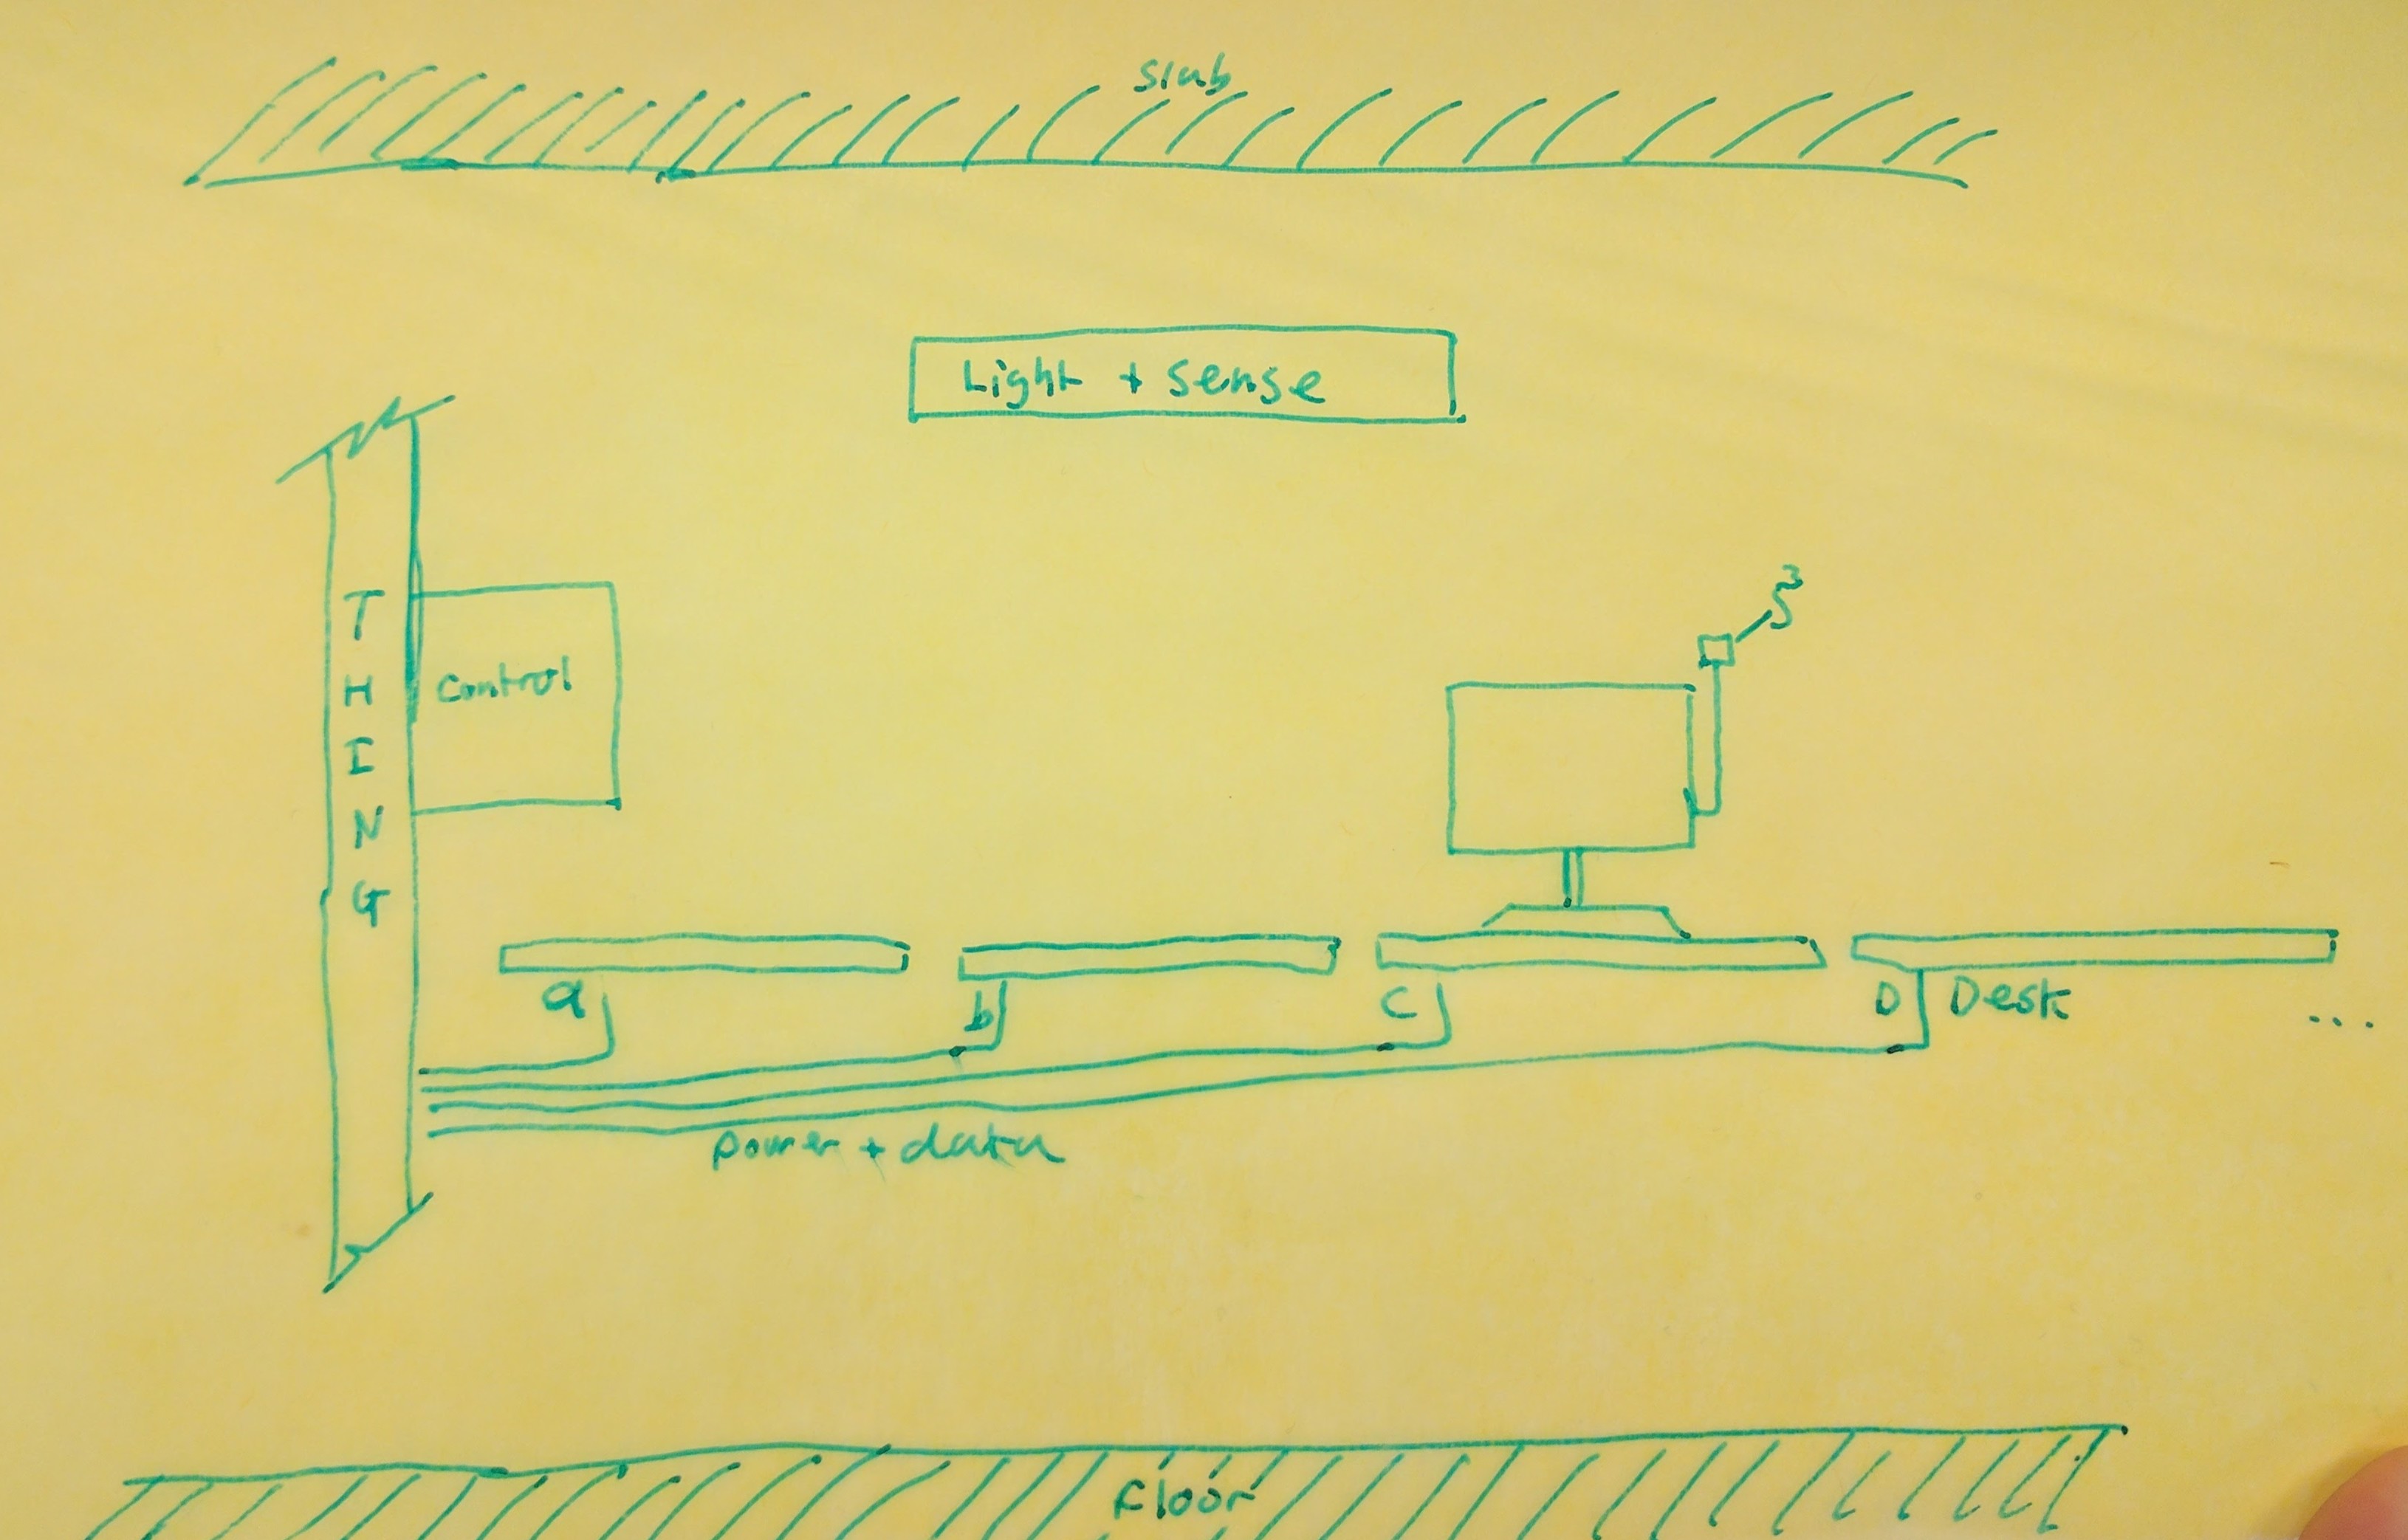 Slab
Light + Sense
THING
Control
a
b
C
D
Desk
...
power + data
Floor